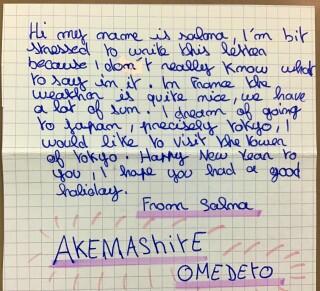 Hi my name is salma, I'm bit
stressed to write this letter
because I don't really know what
to say in it. In France the
weather is quite nice, we have
a lot of sun. I dream of going
to Japan, precisely tokyo, I
would like to visit the tower
of tokyo. Happy New Year to
you, I hope you had a good
holiday.
From Salma
AKEMAShitE
OMEDEtO